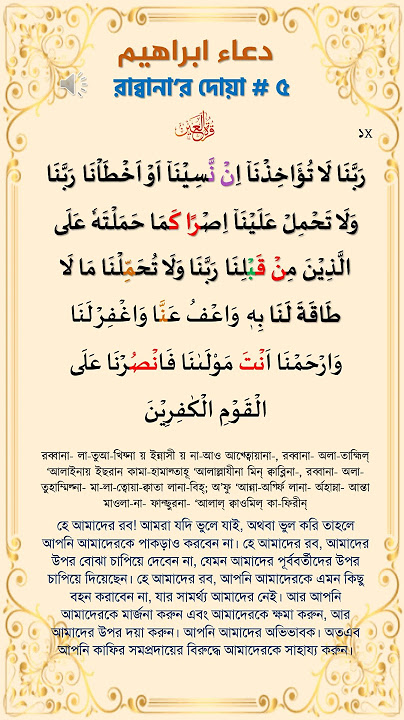 دعاء ابراهيم
রাব্বানা’র দোয়া # ৫
قرة العين
১X
رَبَّنَا لَا تُؤَاخِذْنَآ اِنْ نَّسِيْنَآ اَوْ اَخْطَأْنَا رَبَّنَا
وَلَا تَحْمِلْ عَلَيْنَآ اِصْرًا كَمَا حَمَلْتَهٗ عَلَى
الَّذِيْنَ مِنْ قَبْلِنَا رَبَّنَا وَلَا تُحَمِّلْنَا مَا لَا
طَاقَةَ لَنَا بِهٖ وَاعْفُ عَنَّا وَاغْفِرْ لَنَا
وَارْحَمْنَا اَنْتَ مَوْلٰىنَا فَانْصُرْنَا عَلَى
الْقَوْمِ الْكٰفِرِيْنَ
রব্বানা- লা-তুআ-খিয্না য় ইন্নাসী য় না-আও আখ্ত্বোয়ানা-, রব্বানা- অলা-তাহ্মিল্
‘আলাইনায় ইছরান কামা-হামাল্তাহূ ‘আলাল্লাযীনা মিন্ ক্বাব্লিনা-, রব্বানা- অলা-
তুহাম্মিল্না- মা-লা-ত্বোয়া-ক্বাতা লানা-বিহ্; অ’ফু ‘আন্না-অগ্ফির্ লানা- অর্হাম্না- আন্তা
মাওলা-না- ফান্ছুরনা- ‘আলাল্ ক্বাওমিল্ কা-ফিরীন্
হে আমাদের রব! আমরা যদি ভুলে যাই, অথবা ভুল করি তাহলে
আপনি আমাদেরকে পাকড়াও করবেন না। হে আমাদের রব, আমাদের
উপর বোঝা চাপিয়ে দেবেন না, যেমন আমাদের পূর্ববর্তীদের উপর
চাপিয়ে দিয়েছেন। হে আমাদের রব, আপনি আমাদেরকে এমন কিছু
বহন করাবেন না, যার সামর্থ্য আমাদের নেই। আর আপনি
আমাদেরকে মার্জনা করুন এবং আমাদেরকে ক্ষমা করুন, আর
আমাদের উপর দয়া করুন। আপনি আমাদের অভিভাবক। অতএব
আপনি কাফির সমপ্রদায়ের বিরুদ্ধে আমাদেরকে সাহায্য করুন।